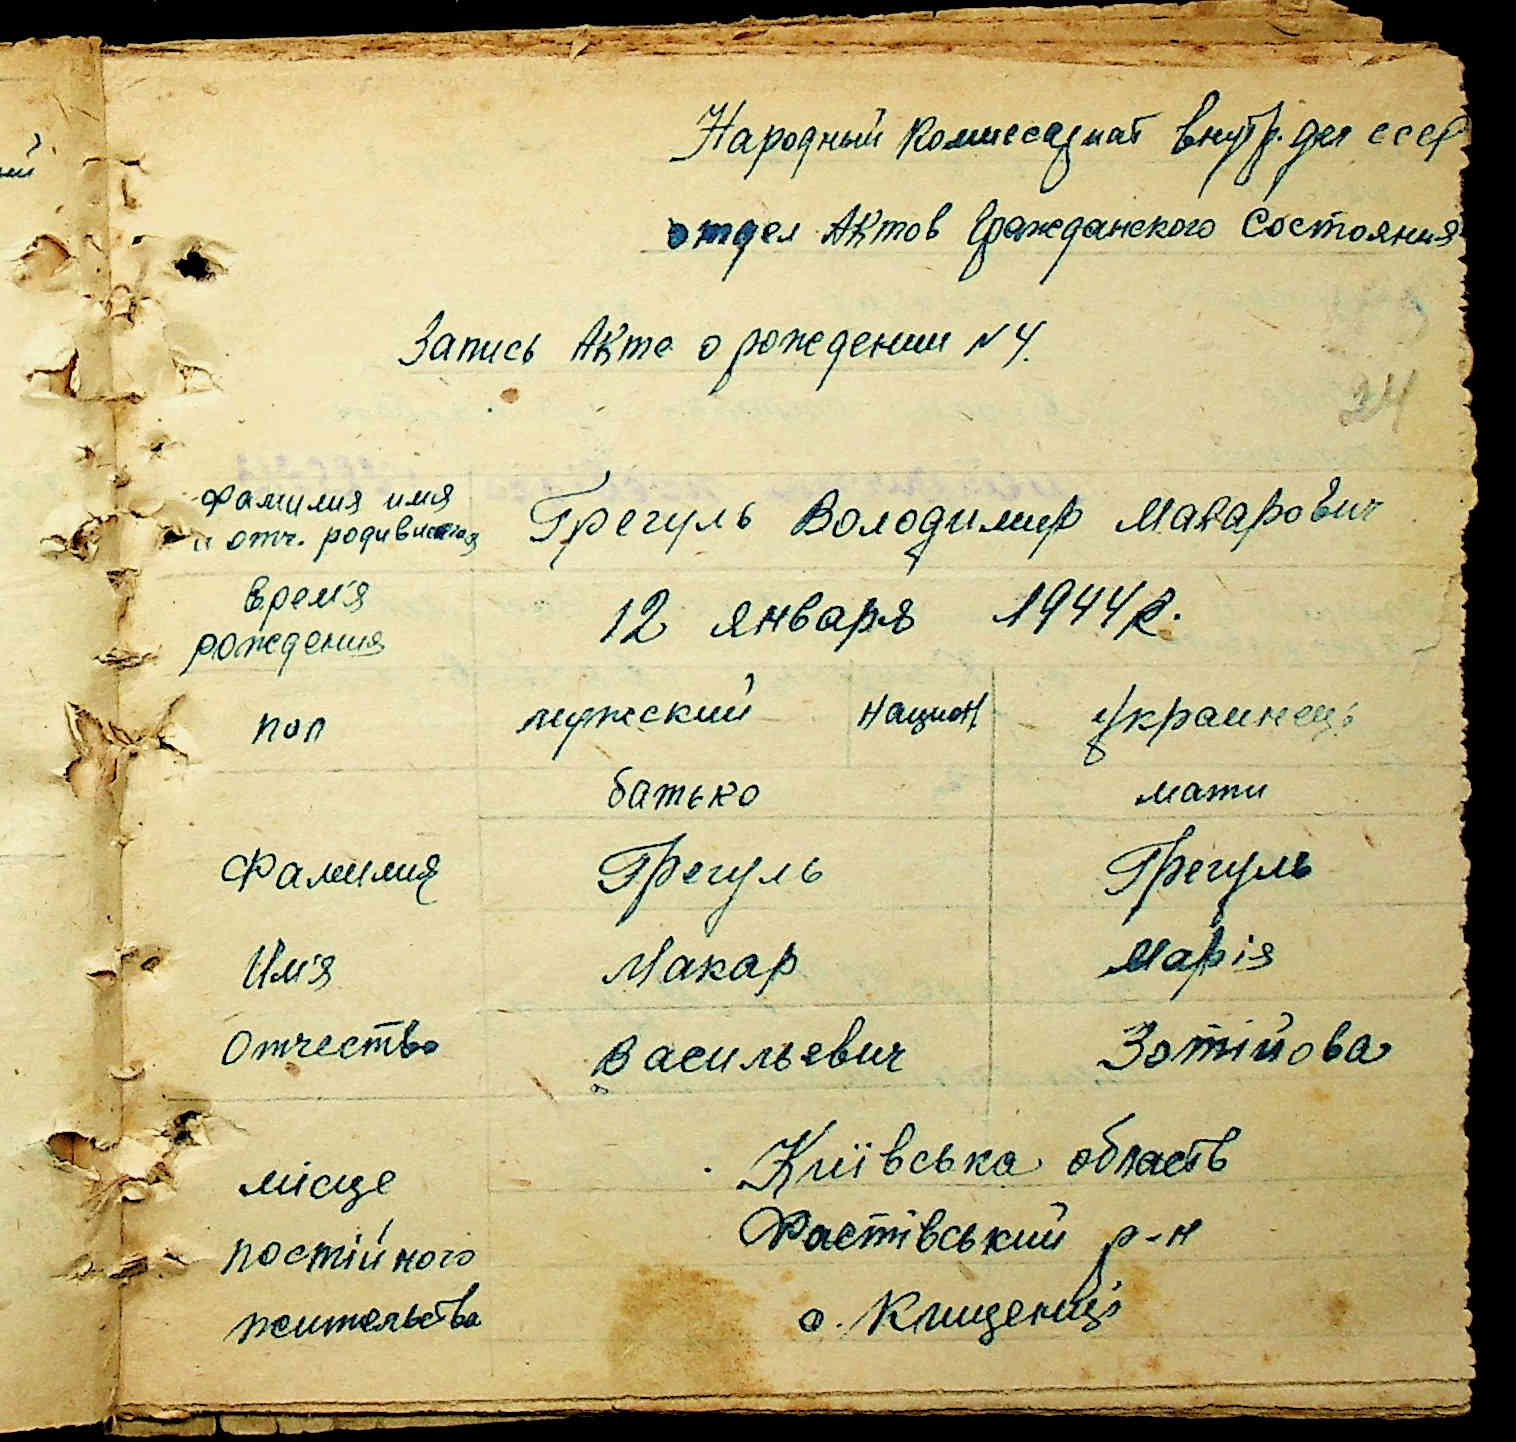 Народный Комиссариат внутр. дел СССР
отдел Актов Гражданского Состояния
Запись Акта о рождении N 4.
24
Фамилия имя
и отч. родившегося
Грегуль Володимир Макарович
Врем'я
рождения
12 января 1944 г.
пол мужский национ украинець
батько мати
Фамилия Грегуль Грегуль
Им'я Макар Марія
Отчество Васильевич Зотійова
місце Київська область
постійного Фастівський р-н
жительства с. Клищенці